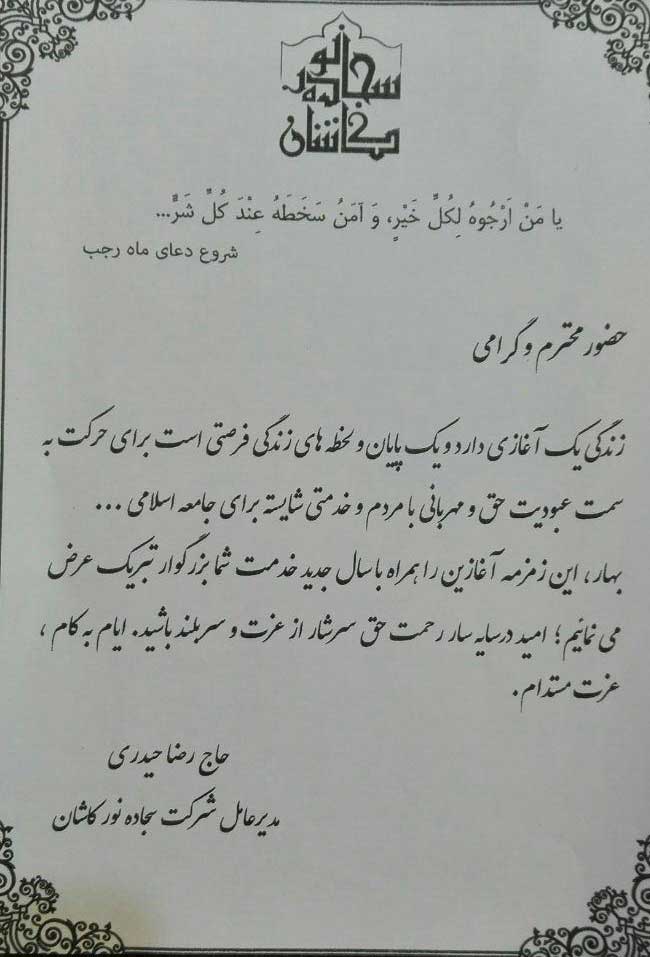 سجاده نور
کاشان
یا مَنْ اَرْجُوهُ لِکُلِّ خَیْرٍ، وَ آمَنُ سَخَطَهُ عِنْدَ کُلِّ شَرٍّ...
شروع دعای ماه رجب
حضور محترم و گرامی
زندگی یک آغازی دارد و یک پایان و لحظه های زندگی فرصتی است برای حرکت به
سمت عبودیت حق و مهربانی با مردم و خدمتی شایسته برای جامعه اسلامی ...
بهار، این زمزمه آغازین را همراه با سال جدید خدمت شما بزرگوار تبریک عرض
می نمائیم؛ امید در سایه سار رحمت حق سرشار از عزت و سربلند باشید. ایام به کام،
عزت مستدام.
حاج رضا حیدری
مدیرعامل شرکت سجاده نور کاشان